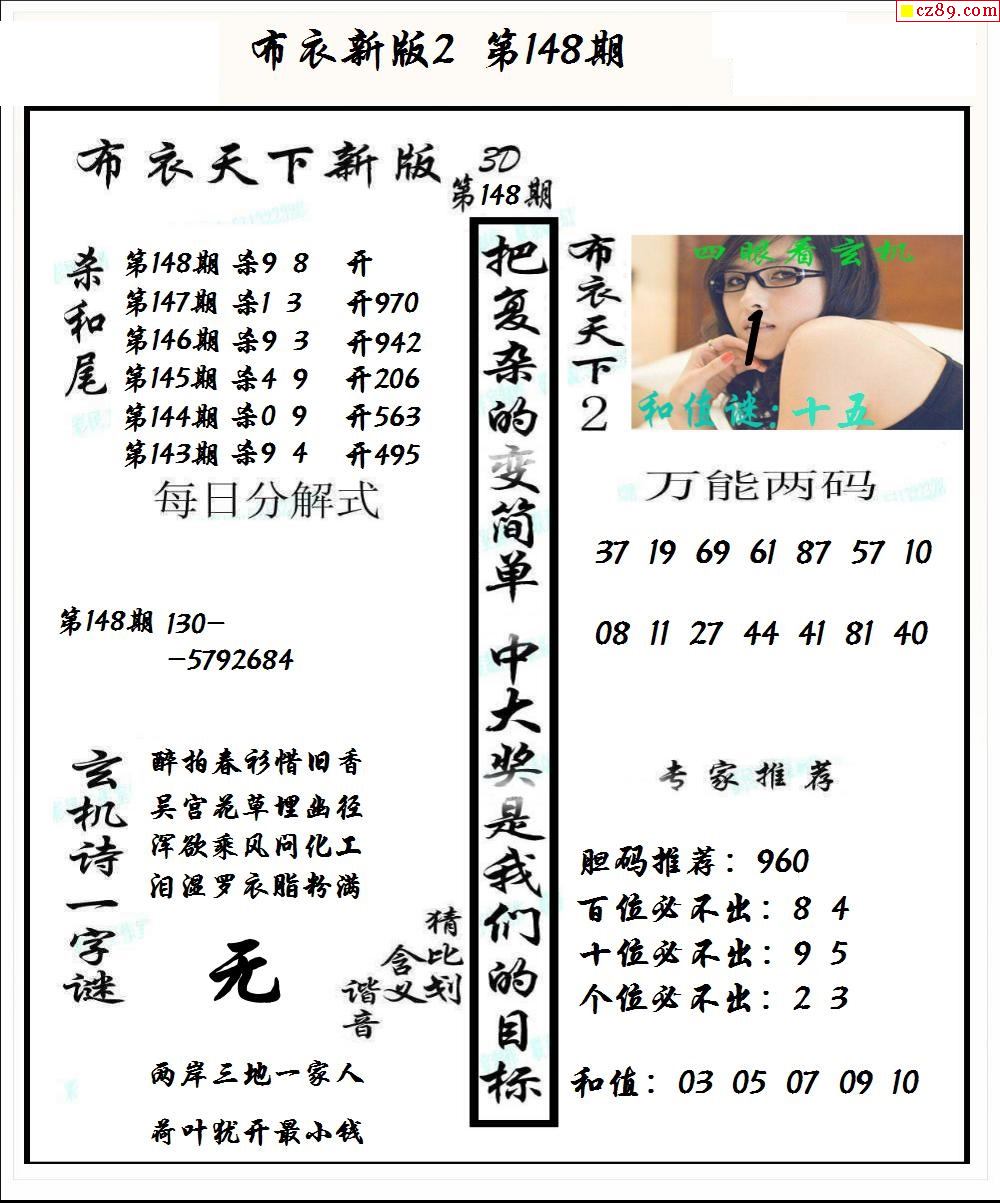 cz89.com
布衣新版2 第148期
布衣天下新版 3D
第148期
杀和尾
第148期 杀9 8 开
第147期 杀1 3 开970
第146期 杀9 3 开942
第145期 杀4 9 开206
第144期 杀0 9 开563
第143期 杀9 4 开495
每日分解式
第148期 130-
-5792684
玄机诗一字谜
醉拍春衫惜旧香
吴宫花草埋幽径
浑欲乘风问化工
泪湿罗衣脂粉满
无
猜比划
含义
谐音
两岸三地一家人
荷叶犹开最小钱
把复杂的变简单 中大奖是我们的目标
布衣天下2
四眼看玄机
1
和值谜:十五
万能两码
37 19 69 61 87 57 10
08 11 27 44 41 81 40
专家推荐
胆码推荐：960
百位必不出：8 4
十位必不出：9 5
个位必不出：2 3
和值：03 05 07 09 10